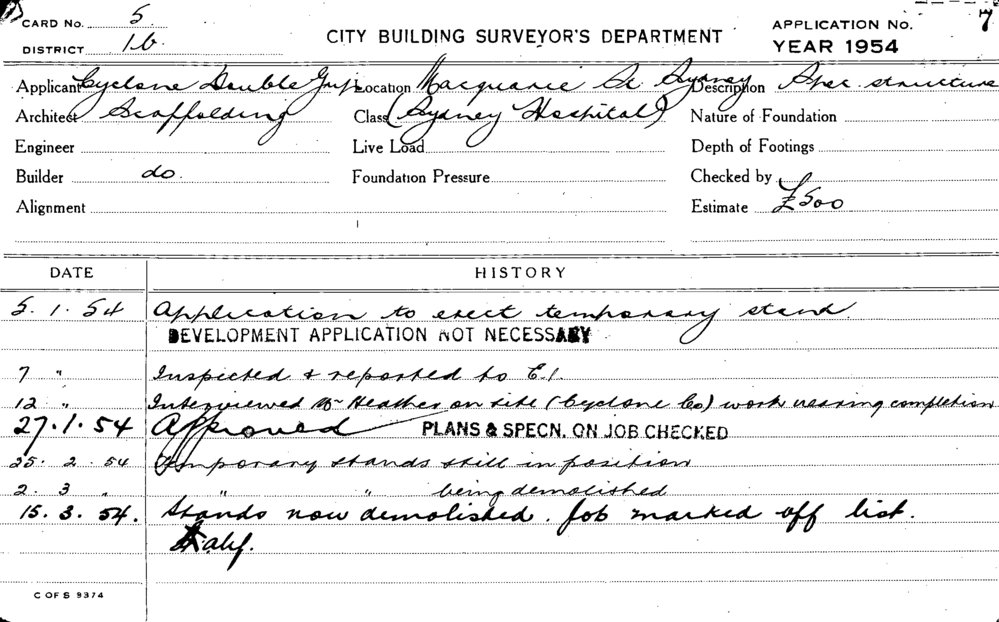 CARD No. 5
DISTRICT 1b.
CITY BUILDING SURVEYOR'S DEPARTMENT
APPLICATION No. 7
YEAR 1954
Applicant Cyclone Double Grip Location Macquarie St Sydney Description Spec. structure
Architect Scaffolding Class (Sydney Hospital) Nature of Foundation
Engineer Live Load Depth of Footings
Builder do. Foundation Pressure Checked by
Alignment Estimate £500
DATE HISTORY
5. 1. 54 Application to erect temporary stand.
DEVELOPMENT APPLICATION NOT NECESSARY
7 " Inspected & reported to E.I.
12 " Interviewed Mr Heather on site (Cyclone Co) work nearing completion
27. 1. 54 Approved PLANS & SPECN. ON JOB CHECKED
25. 2. 54 Temporary stands still in position
2. 3 " " " being demolished
15. 3. 54. Stands now demolished. Job marked off list.
C OF S 9374